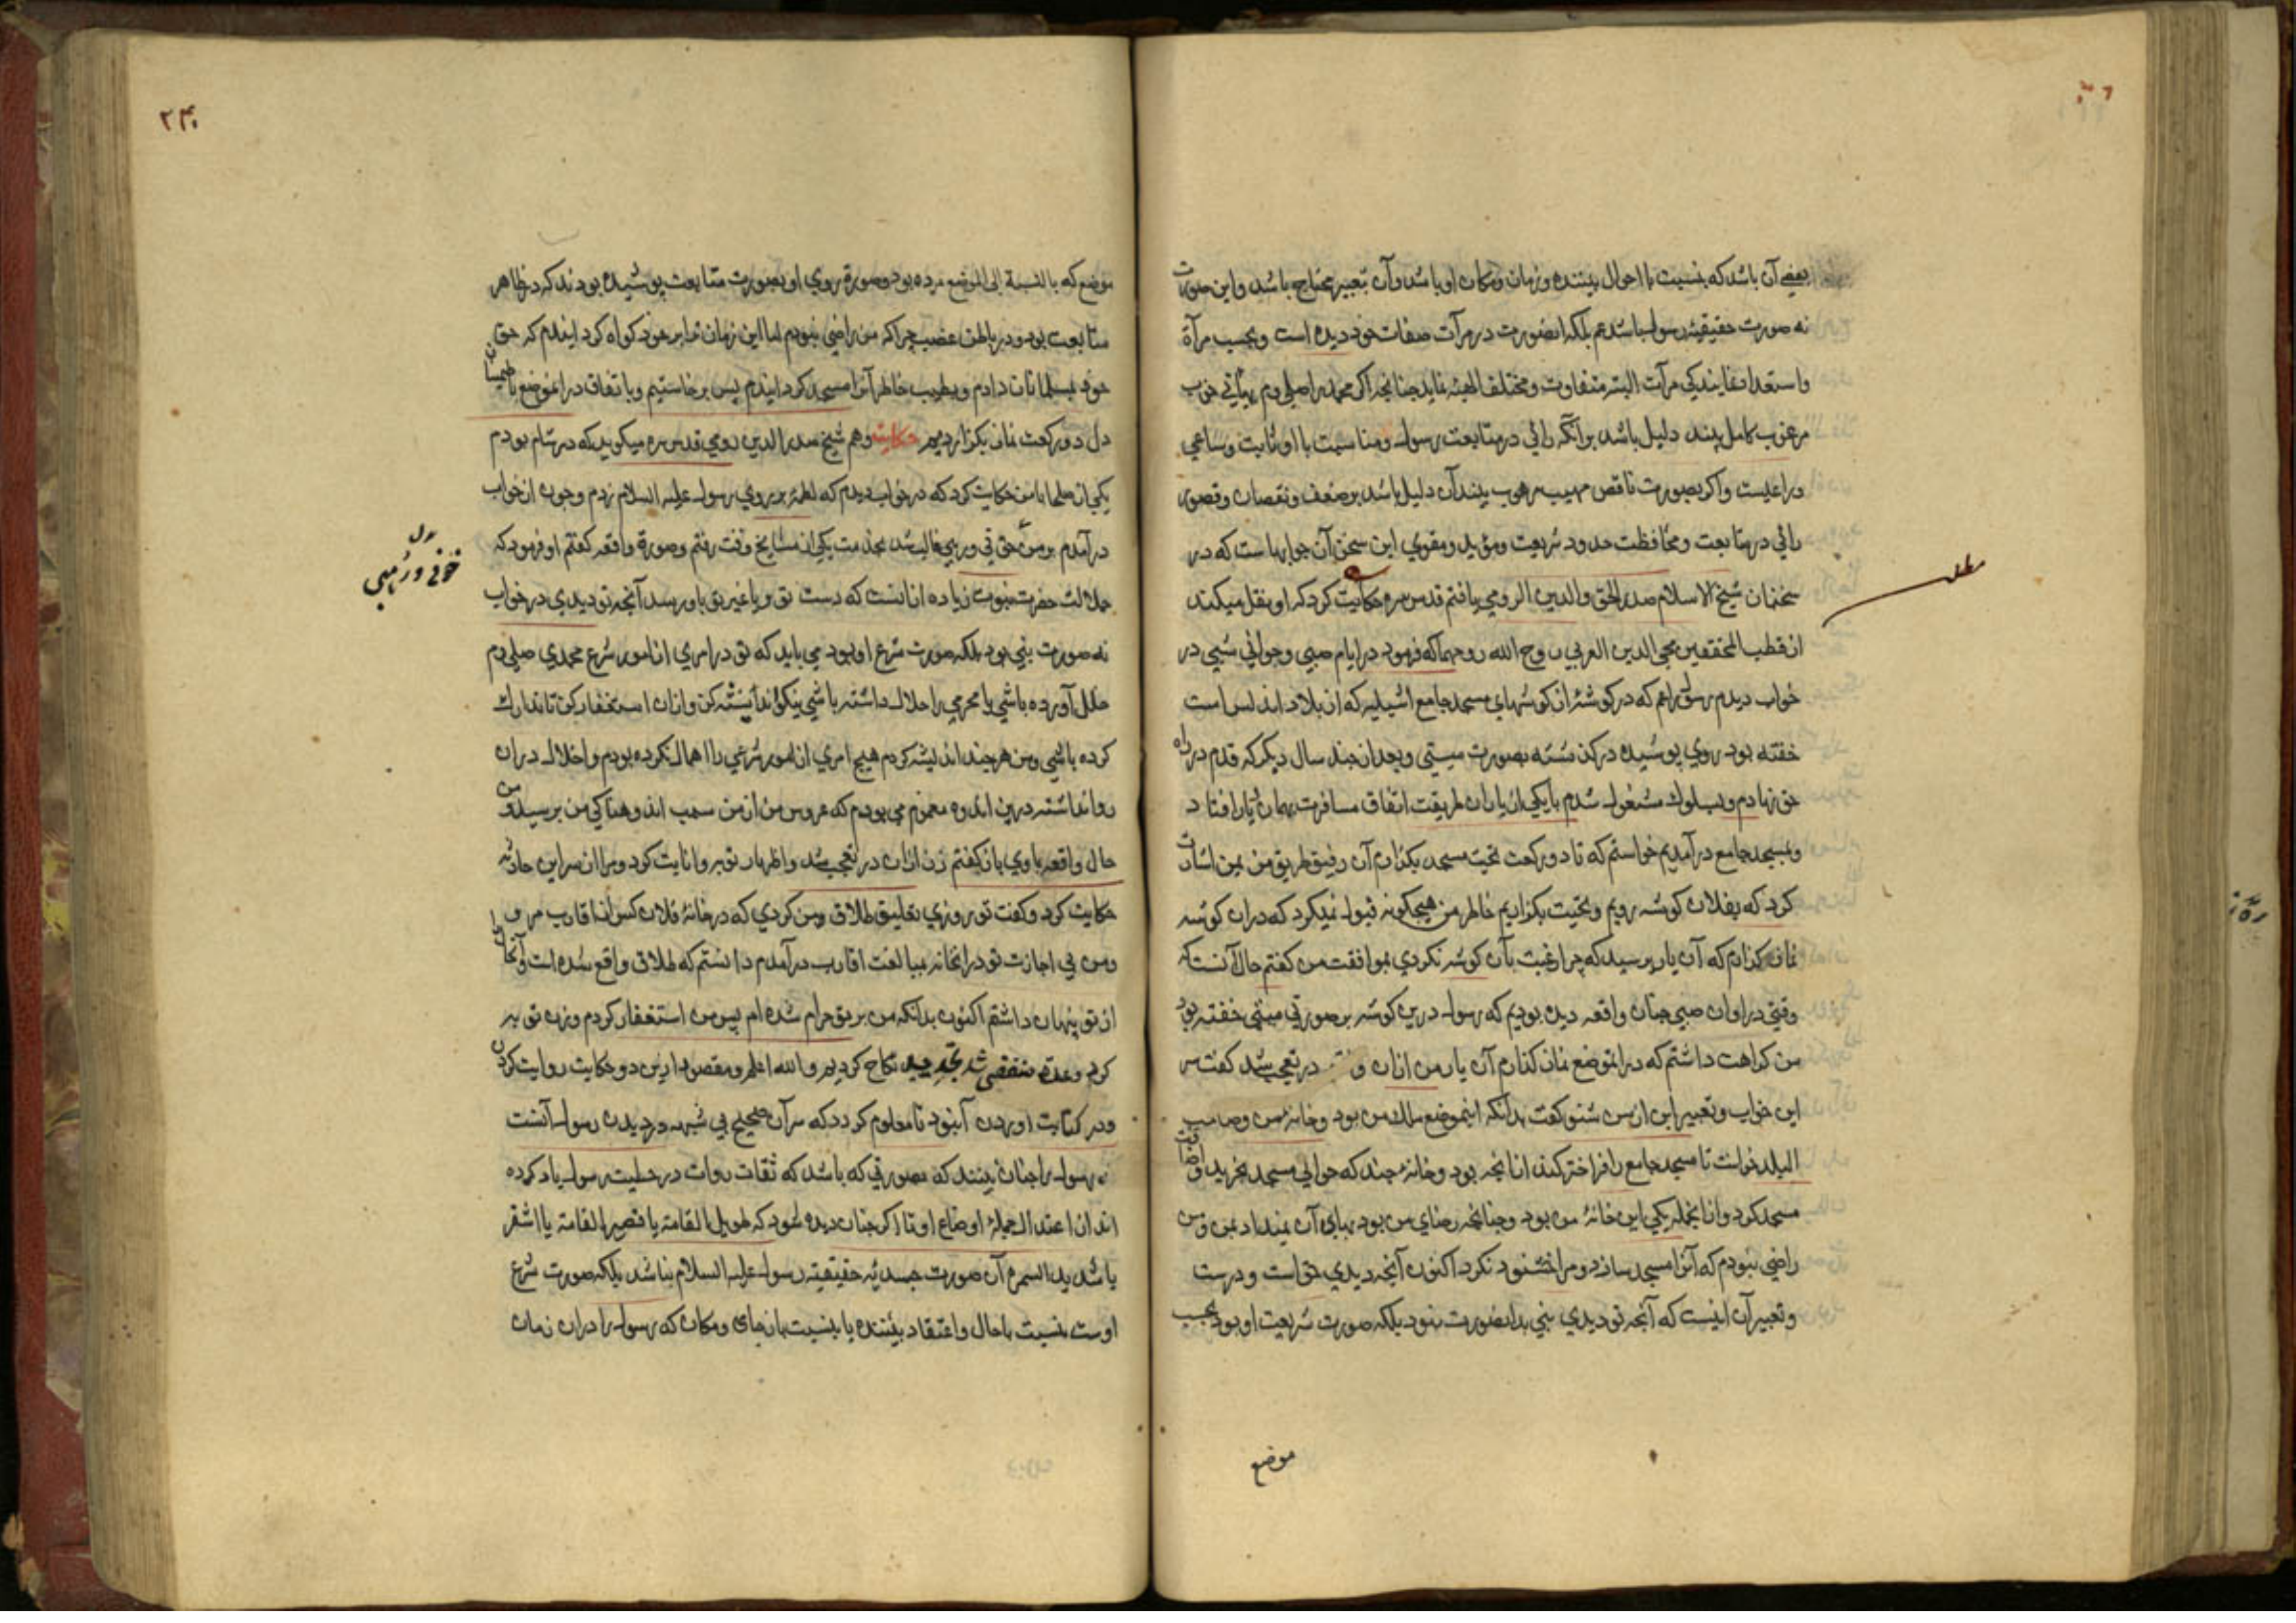 بعضی آن باشد که بنسبت با احوال بیننده و زمان و مکان او باشد و آن بتعبیر محتاج باشد و این صورت
نه صورت حقیقیۀ رسول باشد عم بلکه انصورت در مرآت صفات خود دیده است و بحسب مرآة
مرآت البته متفاوت و مختلف الهیئه نماید چنانچه اگر محمد را صلی دم
مرغوب کامل بیند دلیل باشد بر آنکه رائی در متابعت رسول و مناسبت با او ثابت و ساعی
و راغبست و اکر بصورت ناقص مهیب مرهوب بیند آن دلیل باشد بر ضعف و نقصان و قصور
رائی در متابعت و محافظت حدود شریعت و مؤید و مقوی این سخن آن جوابهاست که در
سخنان شیخ الاسلام صدر الحق والدین الرومی یافتم قدس سره حکایت کرد که او نقل میکند
از قطب المحققین محیی الدین العربی روح الله روحهما که فرمود در ایام صبی و جوانی شبی در
خواب دیدم رسول را عم که در کوشۀ از کوشهای مسجد جامع اشبیلیه که از بلاد اندلس است
خفته بود روی پوشیده در کفن بسته بصورت میتی و بعد از چند سال دیکر که قدم در راه
حق نهادم و بسلوک مشغول شدم با یکی از یاران طریقت اتفاق مسافرت بهمان دیار افتاد
و بمسجد جامع درآمدیم خواستم که تا دو رکعت تحیت مسجد بکزارم آن رفیق طریق من بمن اشارت
کرد که بفلان کوشه رویم و تحیت بکزاریم خاطر من هیچکونه قبول نمیکرد که دران کوشه
نماز کذارم که آن یار پرسید که چرا رغبت بآن کوشه نکردی بموافقت من کفتم حال آنست که
وقتی در اوان صبی چنان واقعه دیده بودیم که رسول درین کوشه بر صورتی میتی خفته بود
من کراهت داشتم که در انموضع نماز کذارم آن یار من ازان در تعجب شد کفت
این خواب و تعبیر این از من شنو کفت بدانکه اینموضع ملک من بود و خانۀ من و صاحب
البلد خواست تا مسجد جامع را فراختر کند از انچه بود و خانۀ چند که حوالی مسجد بخرید و اضافت
مسجد کرد و از انجمله یکی این خانۀ من بود و چنانچه رضای من بود بهای آن نمیداد بمن و من
راضی نبودم که آنرا مسجد سازد و مرا خشنود نکرد اکنون آنچه دیدی حق است و درست
و تعبیر آن اینست که آنچه تو دیدی نبی بدانصورت نبود بلکه صورت شریعت او بود بحسب
موضع
۲۴
موضع که بالنسبة الی الموضع مرده بود و صورة روی او بصورت متابعت پوشیده بودند که در ظاهر
متابعت بود و در باطن غضب چرا که من راضی نبودم اما این زمان ترا بر خود کواه کردانیدم که حق
خود بمسلمانان دادم و بطیب خاطر آنرا مسجد کردانیدم پس برخاستیم و باتفاق در انموضع باطمینان
دل دو رکعت نماز بکزاردیم حکایت و هم شیخ صدر الدین رومی قدس سره میکوید که در شام بودم
یکی از صلحا با من حکایت کرد که در خواب دیدم که لطمۀ بر روی رسول علیه السلام زدم و چون از خواب
درآمدم بر من حزنی و رعبی غالب شد بخدمت یکی از مشایخ وقت رفتم و صورة واقعه کفتم او فرمود که
جلالت حضرت نبوت زیاده ازانست که دست تو و یا غیر تو باو رسد آنچه تو دیدی در خواب
نه صورت نبی بود بلکه صورت شرع او بود می باید که تو در امری از امور شرع محمدی صلی دم
خلل آورده باشی یا محرمی را حلال داشته باشی نیکو اندیشه کن و ازان استغفار کن تا تدارک
کرده باشی و من هر چند اندیشه کردم هیچ امری از امور شرعی را اهمال نکرده بودم و اخلال دران
روا نداشته درین اندوه مغموم می بودم که عروس من از من سبب اندوهناکی من پرسید و من
حال واقعه با وی باز کفتم زن ازان در تعجب شد و اظهار توبه و انابت کرد و مرا از سر این حادثه
حکایت کرد و کفت تو روزی تعلیق طلاق من کردی که در خانۀ فلان کس از اقارب مرو
و من بی اجازت تو در انخانه بمبالغت اقارب درآمدم دانستم که طلاق واقع شده است و آنحال را
از تو پنهان داشتم اکنون بدانکه من بر تو حرام شده ام پس من استغفار کردم و زن توبه
کرد و عدة منقضی شد تجدید نکاح کردیم والله اعلم و مقصود ازین دو حکایت روایت کردن
و در کتابت اوردن آنبود تا معلوم کردد که سر آن صحیح بی شبهه در دیدن رسول آنست
که رسول را چنان بینند که بصورتی که باشد که ثقات روات در حلیت رسول یاد کرده
اند از اعتدال جملۀ اوضاع او تا اکر چنان دیده شود که طویل القامة یا قصیر القامة یا اشقر
یا شدید السمرة آن صورت جسدیۀ حقیقیۀ رسول علیه السلام نباشد بلکه صورت شرع
اوست بنسبت با حال و اعتقاد بیننده یا بنسبت بان جای و مکان که رسول را دران زمان